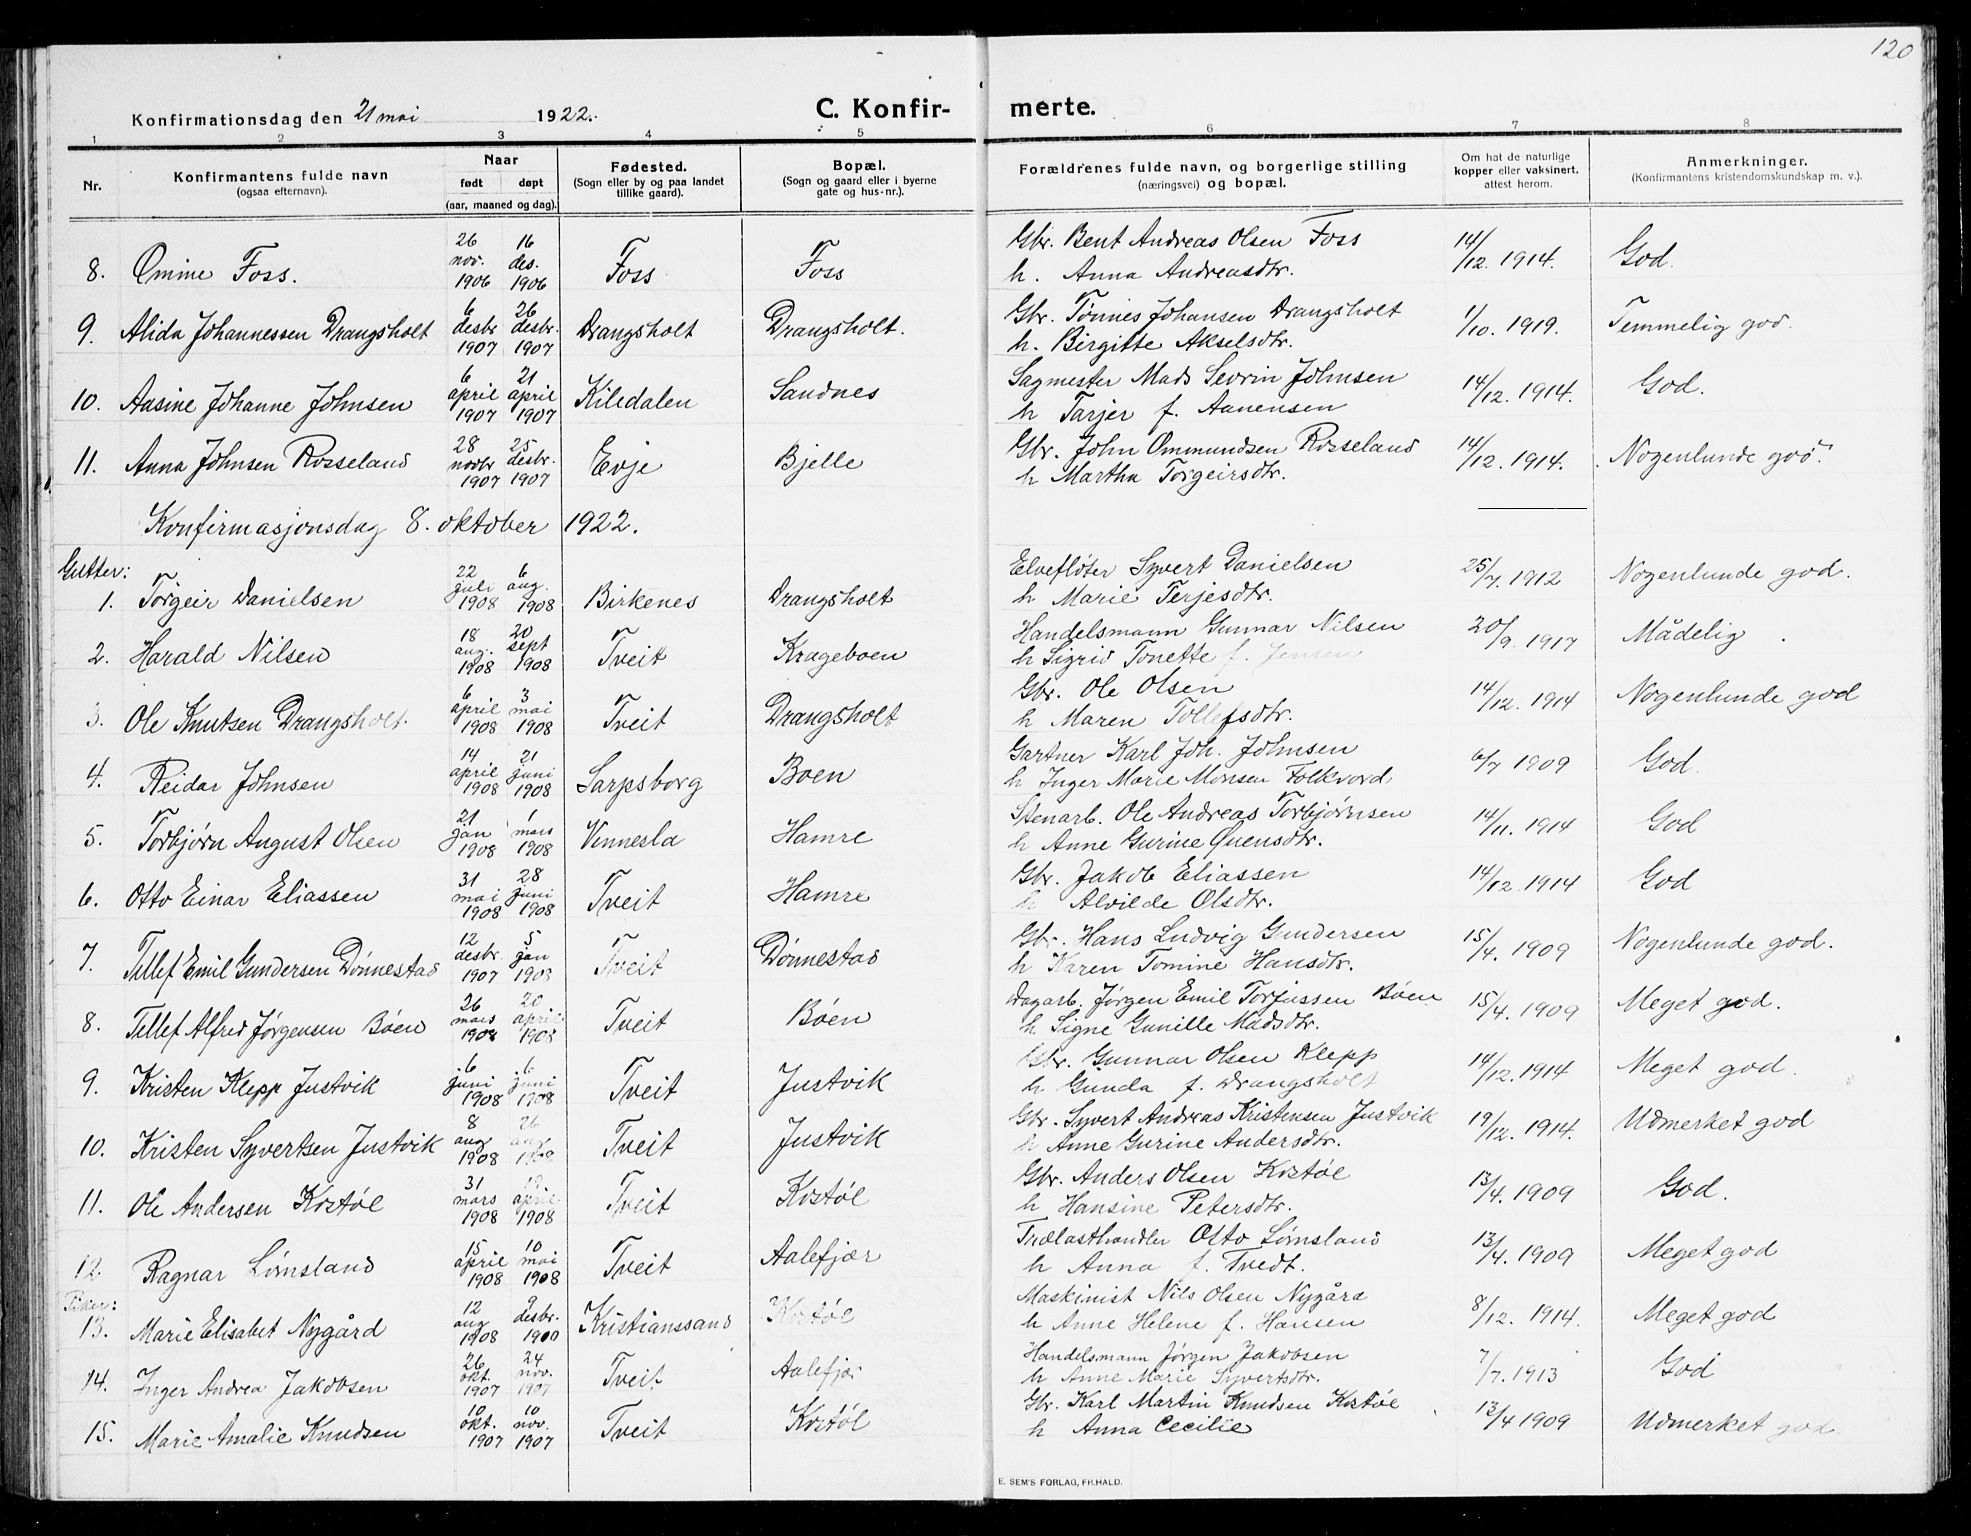 120
Konfirmationsdag den 21 mai 1922.
C. Konfirmerte.
1 2 3 4 5 6 7 8
Nr.
Konfirmantens fulde navn
(ogsaa efternavn).
Naar
født døpt
(aar, maaned og dag).
Fødested.
(Sogn eller by og paa landet
tillike gaard).
Bopæl.
(Sogn og gaard eller i byerne
gate og hus-nr.).
Forældrenes fulde navn, og borgerlige stilling
(næringsvei) og bopæl.
Om hat de naturlige
kopper eller vaksinert,
attest herom.
Anmerkninger.
(Konfirmantens kristendomskundskap m. v.).
8. Omine Foss. 26 nov. 1906 16 des. 1906 Foss Foss Gbr. Bent Andreas Olsen Foss 14/12. 1914. God.
h. Anna Andreasdtr.
9. Alida Johannessen Drangsholt 6 desbr 1907 26 desbr. 1907 Drangsholt Drangsholt. Gbr. Tønnes Johansen Drangsholt 1/10. 1919. Temmelig god.
h. Birgitte Akselsdtr.
10. Aasine Johanne Johnsen 6 april 1907 21 april 1907 Kiledalen Sandnes Sagmester Mads Sevrin Johnsen 14/12. 1914. God.
h Tarjer f. Aanensen
11. Anna Johnsen Rosseland 28 novbr 1907 25 desbr. 1907 Evje Bjelle Gbr. John Ommundsen Rosseland 14/12. 1914. Nogenlunde god.
h Martha Torgeirsdtr.
Konfirmasjonsdag 8. oktober 1922.
Gutter:
1. Torgeir Danielsen 22 juli 1908 6 aug. 1908 Birkenes Drangsholt Elvefløter Syvert Danielsen 25/7. 1912 Nogenlunde god.
h Marie Terjesdtr.
2. Harald Nilsen 18 aug. 1908 20 sept 1908 Tveit Krageboen Handelsmann Gunnar Nilsen 20/9. 1917 Mådelig.
h Sigrid Tonette f. Jensen
3. Ole Knutsen Drangsholt. 6 april 1908 3 mai 1908 Tveit Drangsholt Gbr. Ole Olsen 14/12. 1914 Nogenlunde god
h Maren Tollefsdtr.
4. Reidar Johnsen 14 april 1908 21 juni 1908 Sarpsborg Boen Gartner Karl Joh. Johnsen 6/7 1909 God.
h Inger Marie Monsen Folkvord
5. Torbjørn August Olsen 21 jan 1908 1 mars 1908 Vennesla Hamre Stenarb. Ole Andreas Torbjørnsen 14/11. 1914 God
h Anne Gurine Øuensdtr.
6. Otto Einar Eliassen 31 mai 1908 28 juni 1908 Tveit Hamre Gbr. Jakob Eliassen 14/12. 1914 God
h Alvilde Olsdtr.
7. Tellef Emil Gundersen Dønnestad 12 desbr. 1907 5 jan 1908 Tveit Dønnestad Gbr. Hans Ludvig Gundersen 15/4. 1909 Nogenlunde god.
h Karen Tomine Hansdtr.
8. Tellef Alfred Jørgensen Bøen 26 mars 1908 20 april 1908 Tveit Bøen Dagarb. Jørgen Emil Torjussen Bøen 15/4. 1909 Meget god.
h Signe Gunille Madsdtr.
9. Kristen Klepp Justvik 6 juni 1908 6 juni 1908 Tveit Justvik Gbr. Gunnar Olsen Klepp 14/12. 1914 Meget god.
h. Gunda f. Drangsholt
10. Kristen Syvertsen Justvik 8 aug 1908 26 aug 1908 Tveit Justvik Gbr. Syvert Andreas Kristensen Justvik 19/12. 1914. Udmerket god
h Anne Gurine Andersdtr.
11. Ole Andersen Kostøl 31 mars 1908 19 april 1908 Tveit Kostøl Gbr. Anders Olsen Kostøl 13/4. 1909 God.
h Hansine Petersdtr.
12. Ragnar Lømsland 15 april 1908 10 mai 1908 Tveit Aalefjær Trælasthandler Otto Lømsland 13/4. 1909 Meget god
h Anna f. Tvedt.
Piker:
13. Marie Elisabet Nygård 12 aug 1908 9 desbr. 1900 Kristianssand Kostøl Maskinist Nils Olsen Nygård 8/12. 1914. Meget god
h Anne Helene f. Hansen
14. Inger Andrea Jakobsen 26 okt. 1907 24 nov. 1907 Tveit Aalefjær Handelsmann Jørgen Jakobsen 7/7. 1913 God
h Anne Marie Syvertsdtr.
15. Marie Amalie Knudsen 10 okt. 1907 10 nov. 1907 Tveit Kostøl Gbr. Karl Martin Knudsen Kostøl 13/4 1909 Udmerket god
h Anna Cecilie
E. SEM'S FORLAG, FR.HALD.